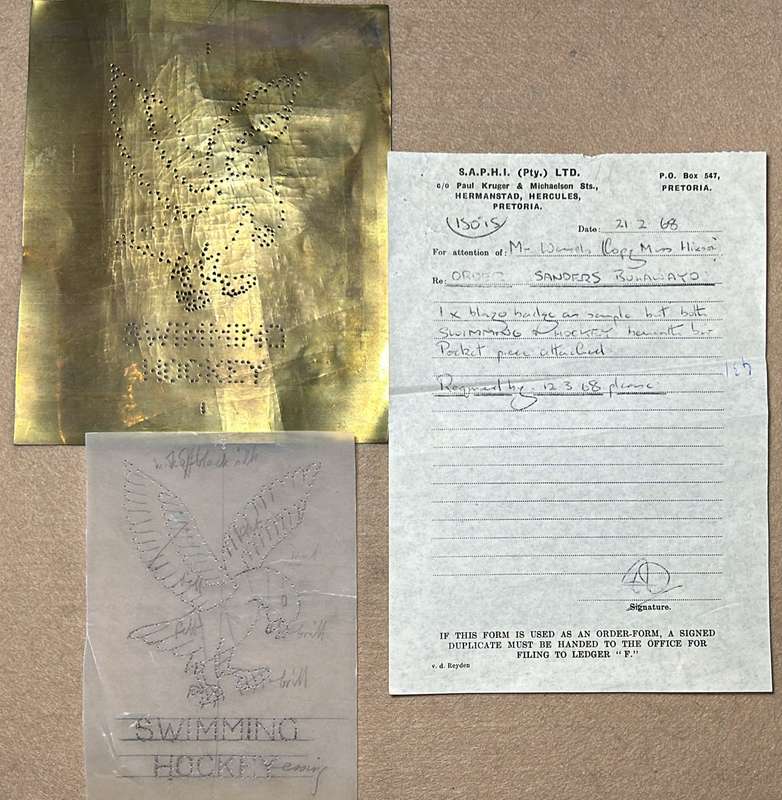 SWIMMING
HOCKEY
S.A.P.H.I. (Pty.) LTD.
c/o Paul Kruger & Michaelson Sts.,
HERMANSTAD, HERCULES,
PRETORIA.
P.O. Box 547,
PRETORIA.
15015
Date: 21 2 68
For attention of: Mr (Copy Miss
Re: ORDER SANDERS BULAWAYO
1 x blazer badge as sample but both
SWIMMING & HOCKEY beneath bar
Pocket piece attached
Required by 12 3 68 please
431
Signature.
IF THIS FORM IS USED AS AN ORDER-FORM, A SIGNED
DUPLICATE MUST BE HANDED TO THE OFFICE FOR
FILING TO LEDGER "F."
v. d. Reyden
black silk
felt
felt
brill
brill
SWIMMING
HOCKEY